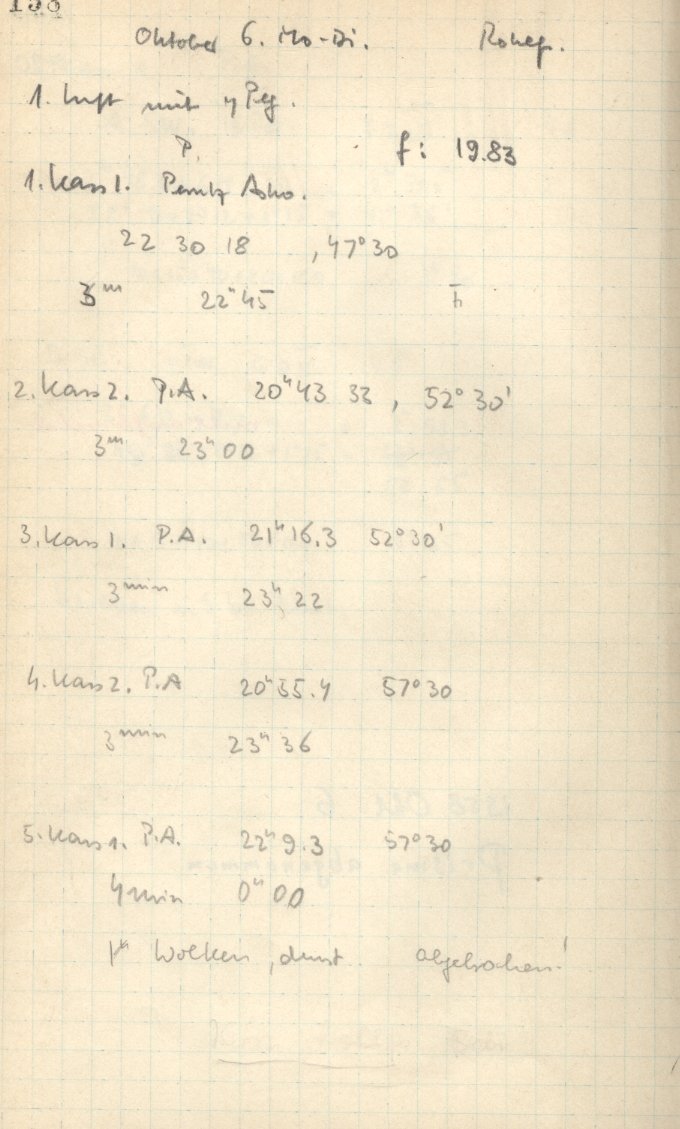 Oktober 6. Mo-Di.
1. Luft mit η Peg.
P. f: 19.83
1. Kass 1.
22 30 18 , 47° 30
3ᵐ 22ʰ 45 h
2. Kass 2. P.A. 20ʰ 43 33 , 52° 30'
3ᵐ 23ʰ 00
3. Kass 1. P.A. 21ʰ 16.3 52° 30'
3ᵐⁱⁿ 23ʰ 22
4. Kass 2. P.A 20ʰ 55.4 57° 30
3ᵐⁱⁿ 23ʰ 36
5. Kass 1. P.A. 22ʰ 9.3 57° 30
4 min 0ʰ 00
1ʰ Wolken, dunst abgebrochen!